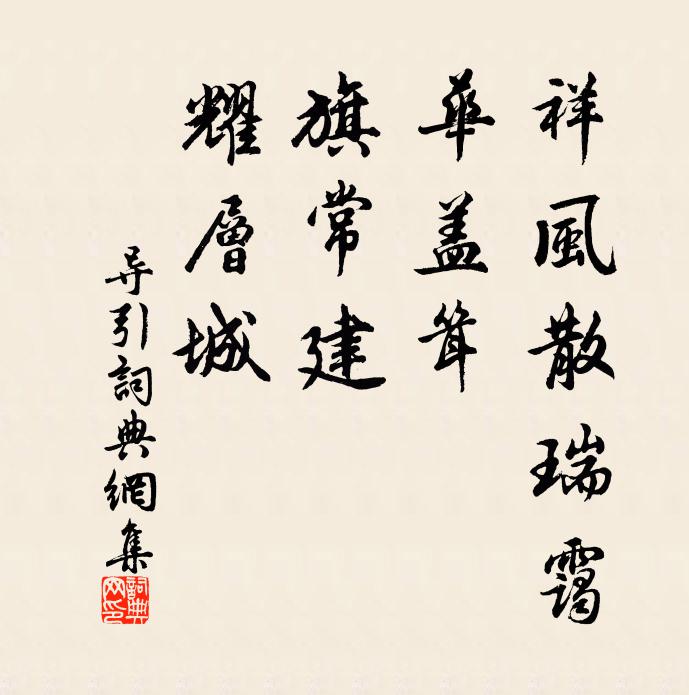 祥風散瑞靄
華盖耸
旗常建
耀層城
导引詞典網集
詞典网印